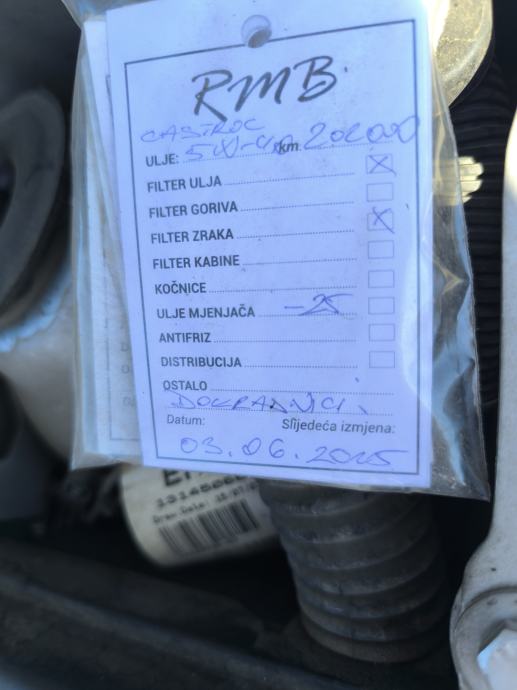 RMB
CASTROL
ULJE: 5W-40 km 202000
FILTER ULJA
FILTER GORIVA
FILTER ZRAKA
FILTER KABINE
KOČNICE
ULJE MJENJAČA
ANTIFRIZ -25
DISTRIBUCIJA
OSTALO
Datum: Slijedeća izmjena:
03.06.2025